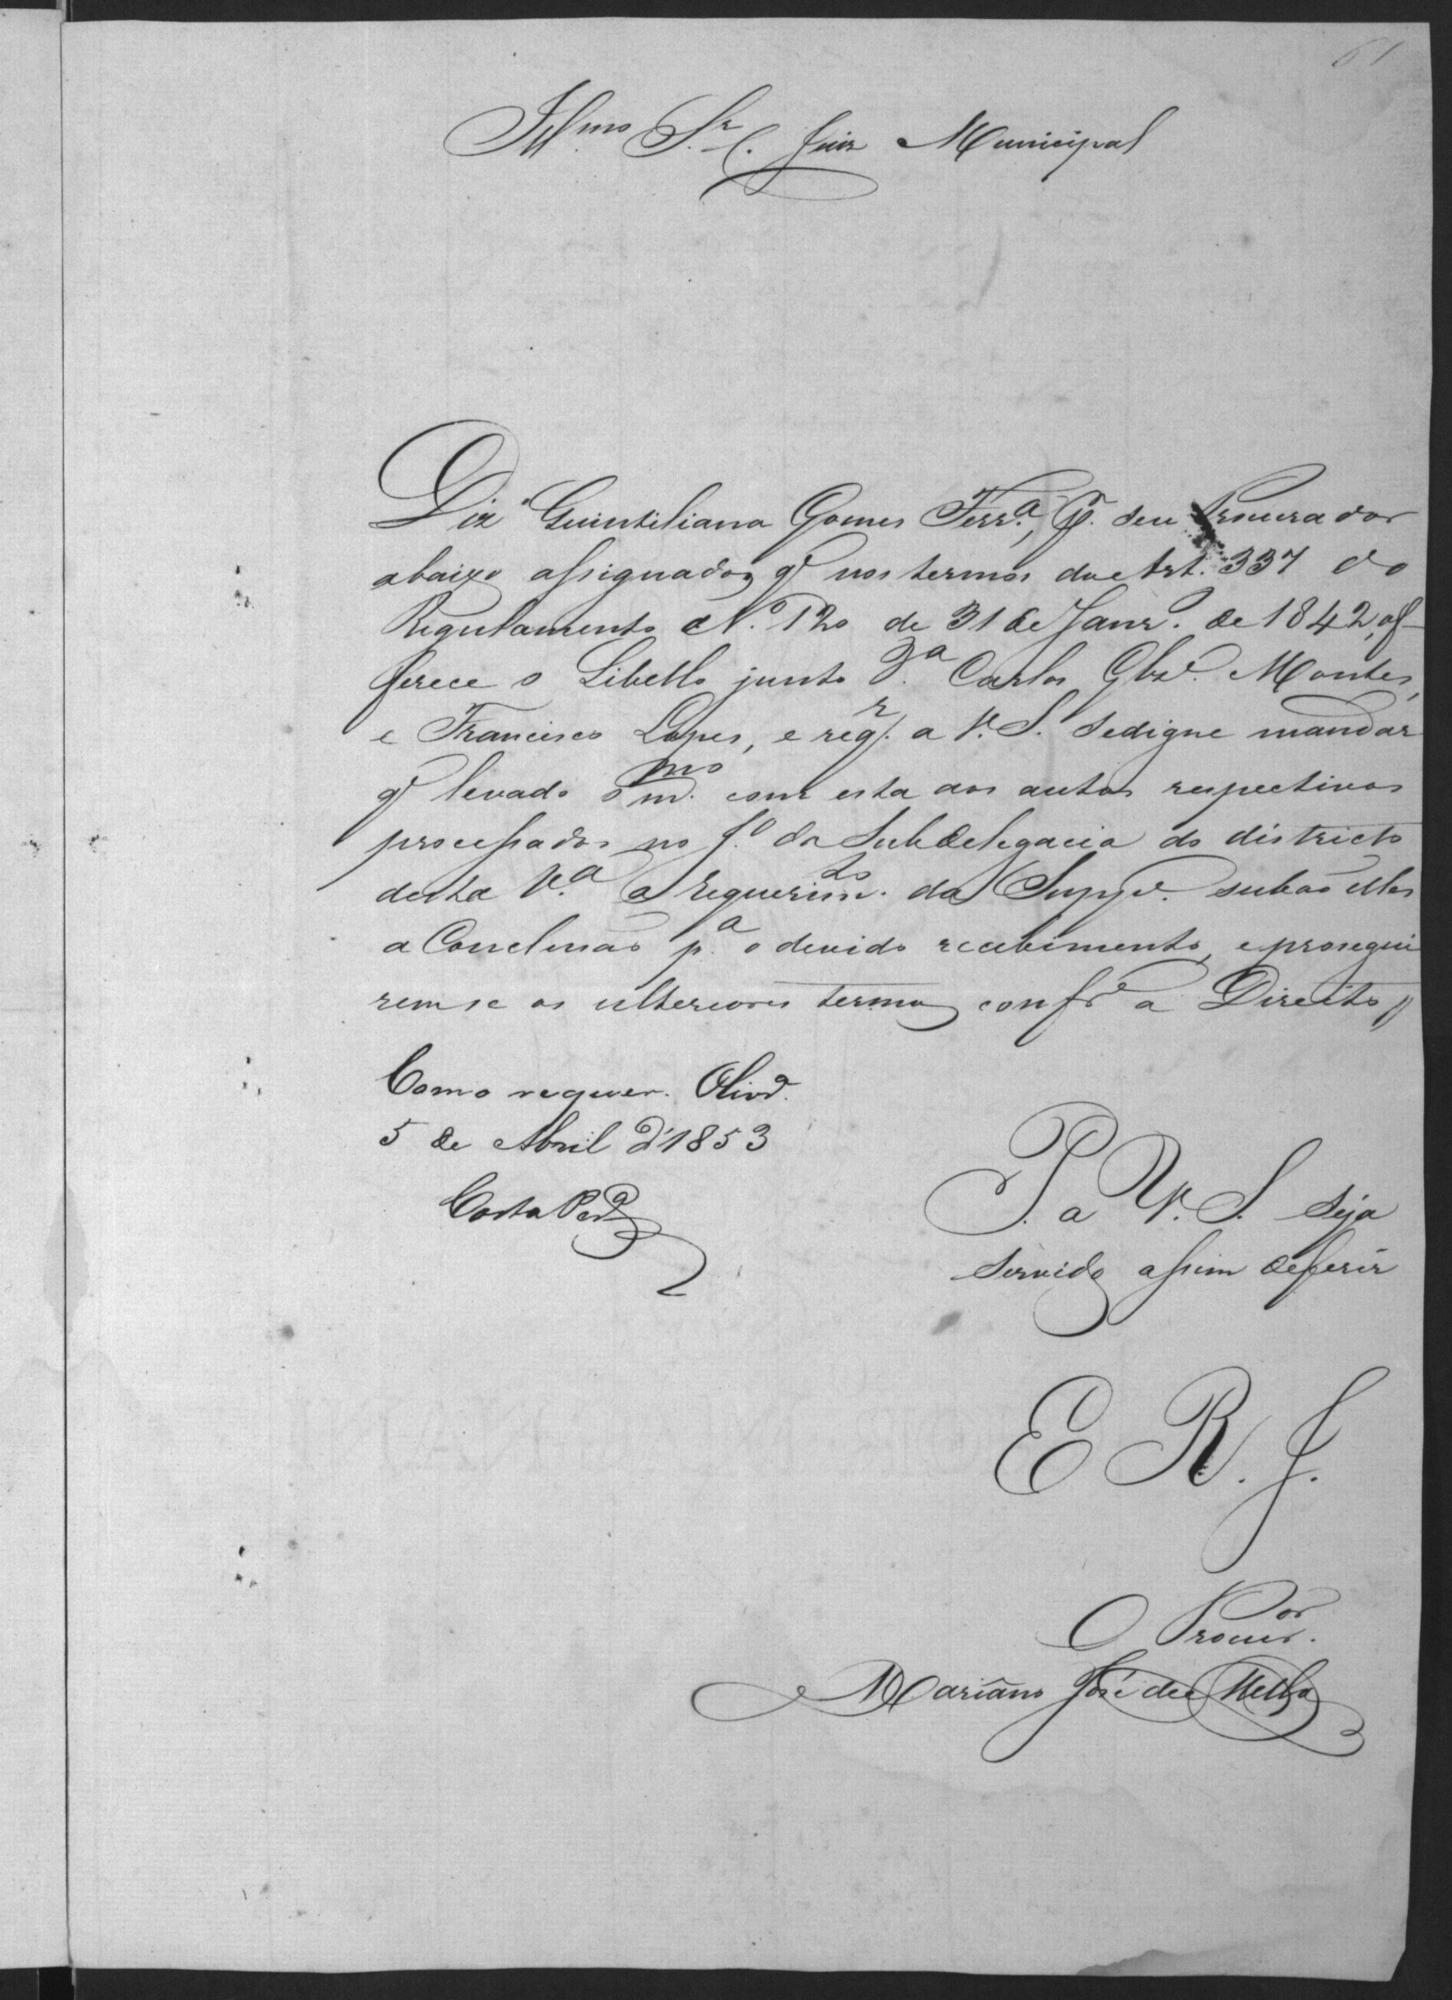 61
Ill.mo Sr. Juiz Municipal
Diz Quintiliana Gomes Ferr.a, p.r seu Procurador
abaixo assignado, q' nos termos do Art. 337 do
Regulamento N.o 120 de 31 de Janr.o de 1842, of-
ferece o Libello junto Carlos Glz.' Montes,
e Francisco Lopes, e reqr. a V. S. sedigne mandar
q' levado o m.mo com esta aos autos respectivos
processados no J.o da Subdelegacia do districto
desta V.a a requerim.to da Supp.e subaõ elles
a Conclusaõ p.a o devido recebimento, e prosegui
remse os ulteriores termos confr.e a Direito p
Como requer. Olivr.a
5 de Abril d'1853
Costa Per.a
P. a V. S. seja
servido assim deferir
E R. J.
O Procur.or
Mariano José de Mello